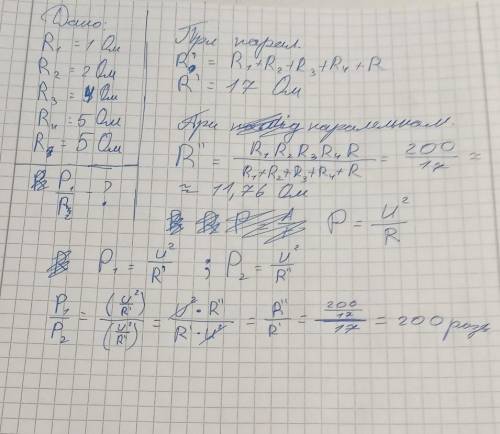 Дано:
R₁ = 1 Ом
R₂ = 2 Ом
R₃ = 4 Ом
R₄ = 5 Ом
R₅ = 5 Ом
P₁/P₂ - ?
При парал.
R' = R₁+R₂+R₃+R₄+R
R' = 17 Ом
При паралельном.
R'' = R₁R₂R₃R₄R / R₁+R₂+R₃+R₄+R = 200/17 ≈
≈ 11,76 Ом
P = U²/R
P₁ = U²/R' ; P₂ = U²/R''
P₁/P₂ = (U²/R')/(U²/R'') = U²·R''/R'·U² = R''/R' = 200/17/17 = 200 разы